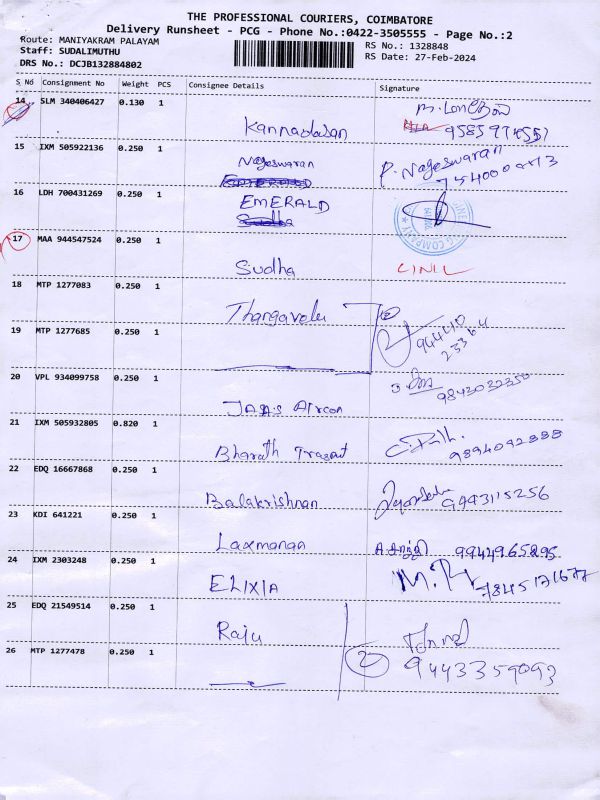 THE PROFESSIONAL COURIERS, COIMBATORE
Delivery Runsheet - PCG - Phone No.:0422-3505555 - Page No.:2
Route: MANIYAKRAM PALAYAM
RS No.: 1328848
Staff: SUDALIMUTHU
RS Date: 27-Feb-2024
DRS No.: DCJB132884802
S No Consignment No Weight PCS Consignee Details Signature
14 SLM 340406427 0.130 1
Kannadasan
15 IXM 505922136 0.250 1
Nageswaran P. Nageswaran
16 LDH 700431269 0.250 1
EMERALD
Sudha
17 MAA 944547524 0.250 1
Sudha
18 MTP 1277083 0.250 1
Thangavelu
19 MTP 1277685 0.250 1
94440
25364
20 VPL 934099758 0.250 1
9843032350
Aircon
21 IXM 505932805 0.820 1
Bharath 9894092888
22 EDQ 16667868 0.250 1
Balakrishnan 9943115256
23 KDI 641221 0.250 1
Laxmanan 9944965295
24 IXM 2303248 0.250 1
ELIXIA 7845171677
25 EDQ 21549514 0.250 1
Raju
26 MTP 1277478 0.250 1
2 9443359093